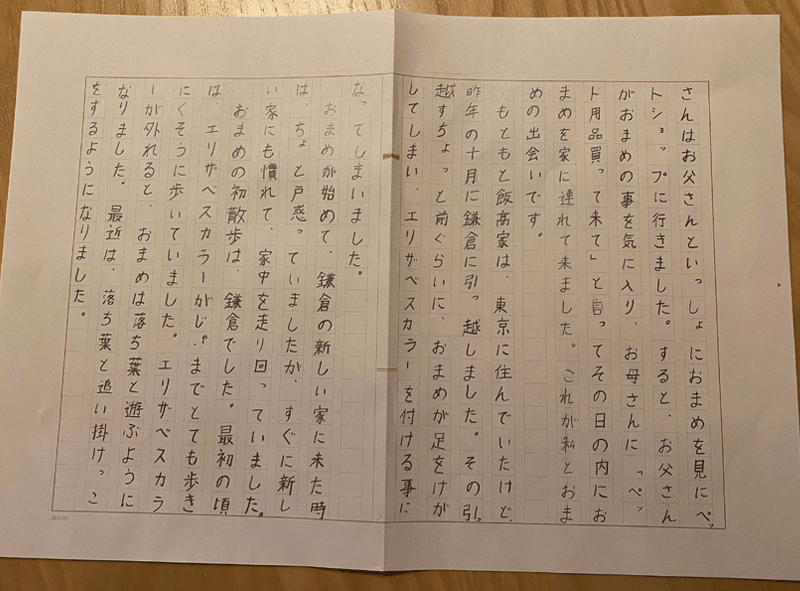 さんはお父さんといっしょにおまめを見にペッ
トショップに行きました。すると、お父さん
がおまめの事を気に入り、お母さんに「ペッ
ト用品買って来て」と言ってその日の内にお
まめを家に連れて来ました。これが私とおま
めの出会いです。
もともと飯髙家は、東京に住んでいたけど、
昨年の十月に鎌倉に引っ越しました。その引っ
越すちょっと前ぐらいに、おまめが足をけが
してしまい、エリザベスカラーを付ける事に
なってしまいました。
おまめが始めて、鎌倉の新しい家に来た時
は、ちょと戸惑っていましたが、すぐに新し
い家にも慣れて、家中を走り回っていました。
おまめの初散歩は、鎌倉でした。最初の頃
は、エリザベスカラーがじゃまでとても歩き
にくそうに歩いていました。エリザベスカラ
ーが外れると、おまめは落ち葉と遊ぶように
なりました。最近は、落ち葉と追い掛けっこ
をするようになりました。